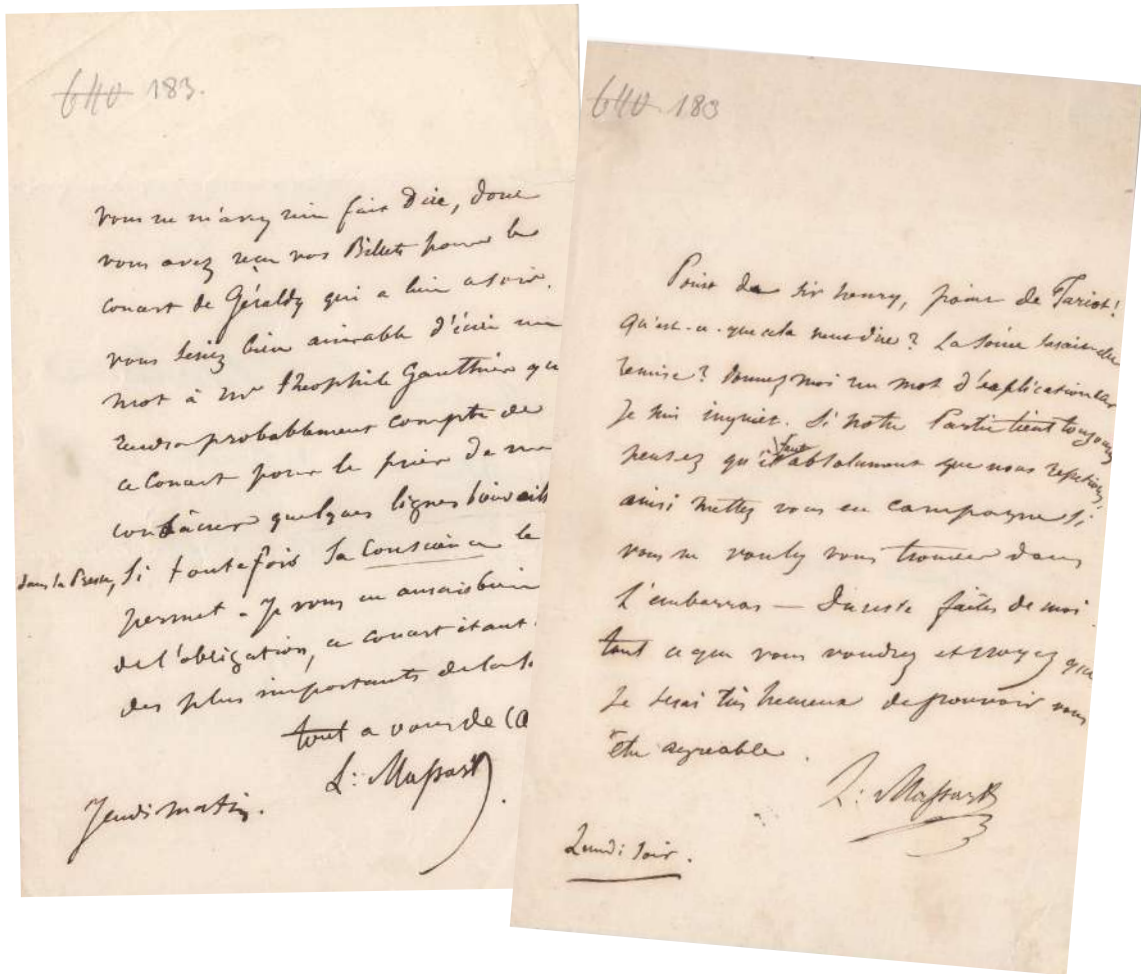 640 183.
vous ne m'avez rien fait Dire, donc
vous avez reçu vos Billets pour le
concert de Géraldy qui a lieu ce soir.
vous seriez bien aimable d'écrire un
mot à mr théophile Gautthier qui
rendra probablement compte de
ce Concert pour le prier de me
consacrer quelques lignes bienveill
dans la Presse, Si toutefois Sa Conscience le
permet - Je vous en aurais bien
de l'obligation, ce concert étant
des plus importants de la
tout a vous de
L: Massart
Jeudi matin.
640 183
Point de Sir henry, point de Tariot!
Qu'est-ce-que cela veut dire? La Soirée serait-elle
remise? Donnez moi un mot d'explication car
Je suis inquiet. Si notre Partie tient toujours
pensez qu'il faut absolument que nous repetions,
ainsi mettez vous en campagne Si
vous ne voulez vous trouver dans
L'embarras — Dureste faites de moi
tout ce que vous voudrez et croyez que
Je serai très heureux de pouvoir vous
être agreable.
L: Massart
Lundi Soir.